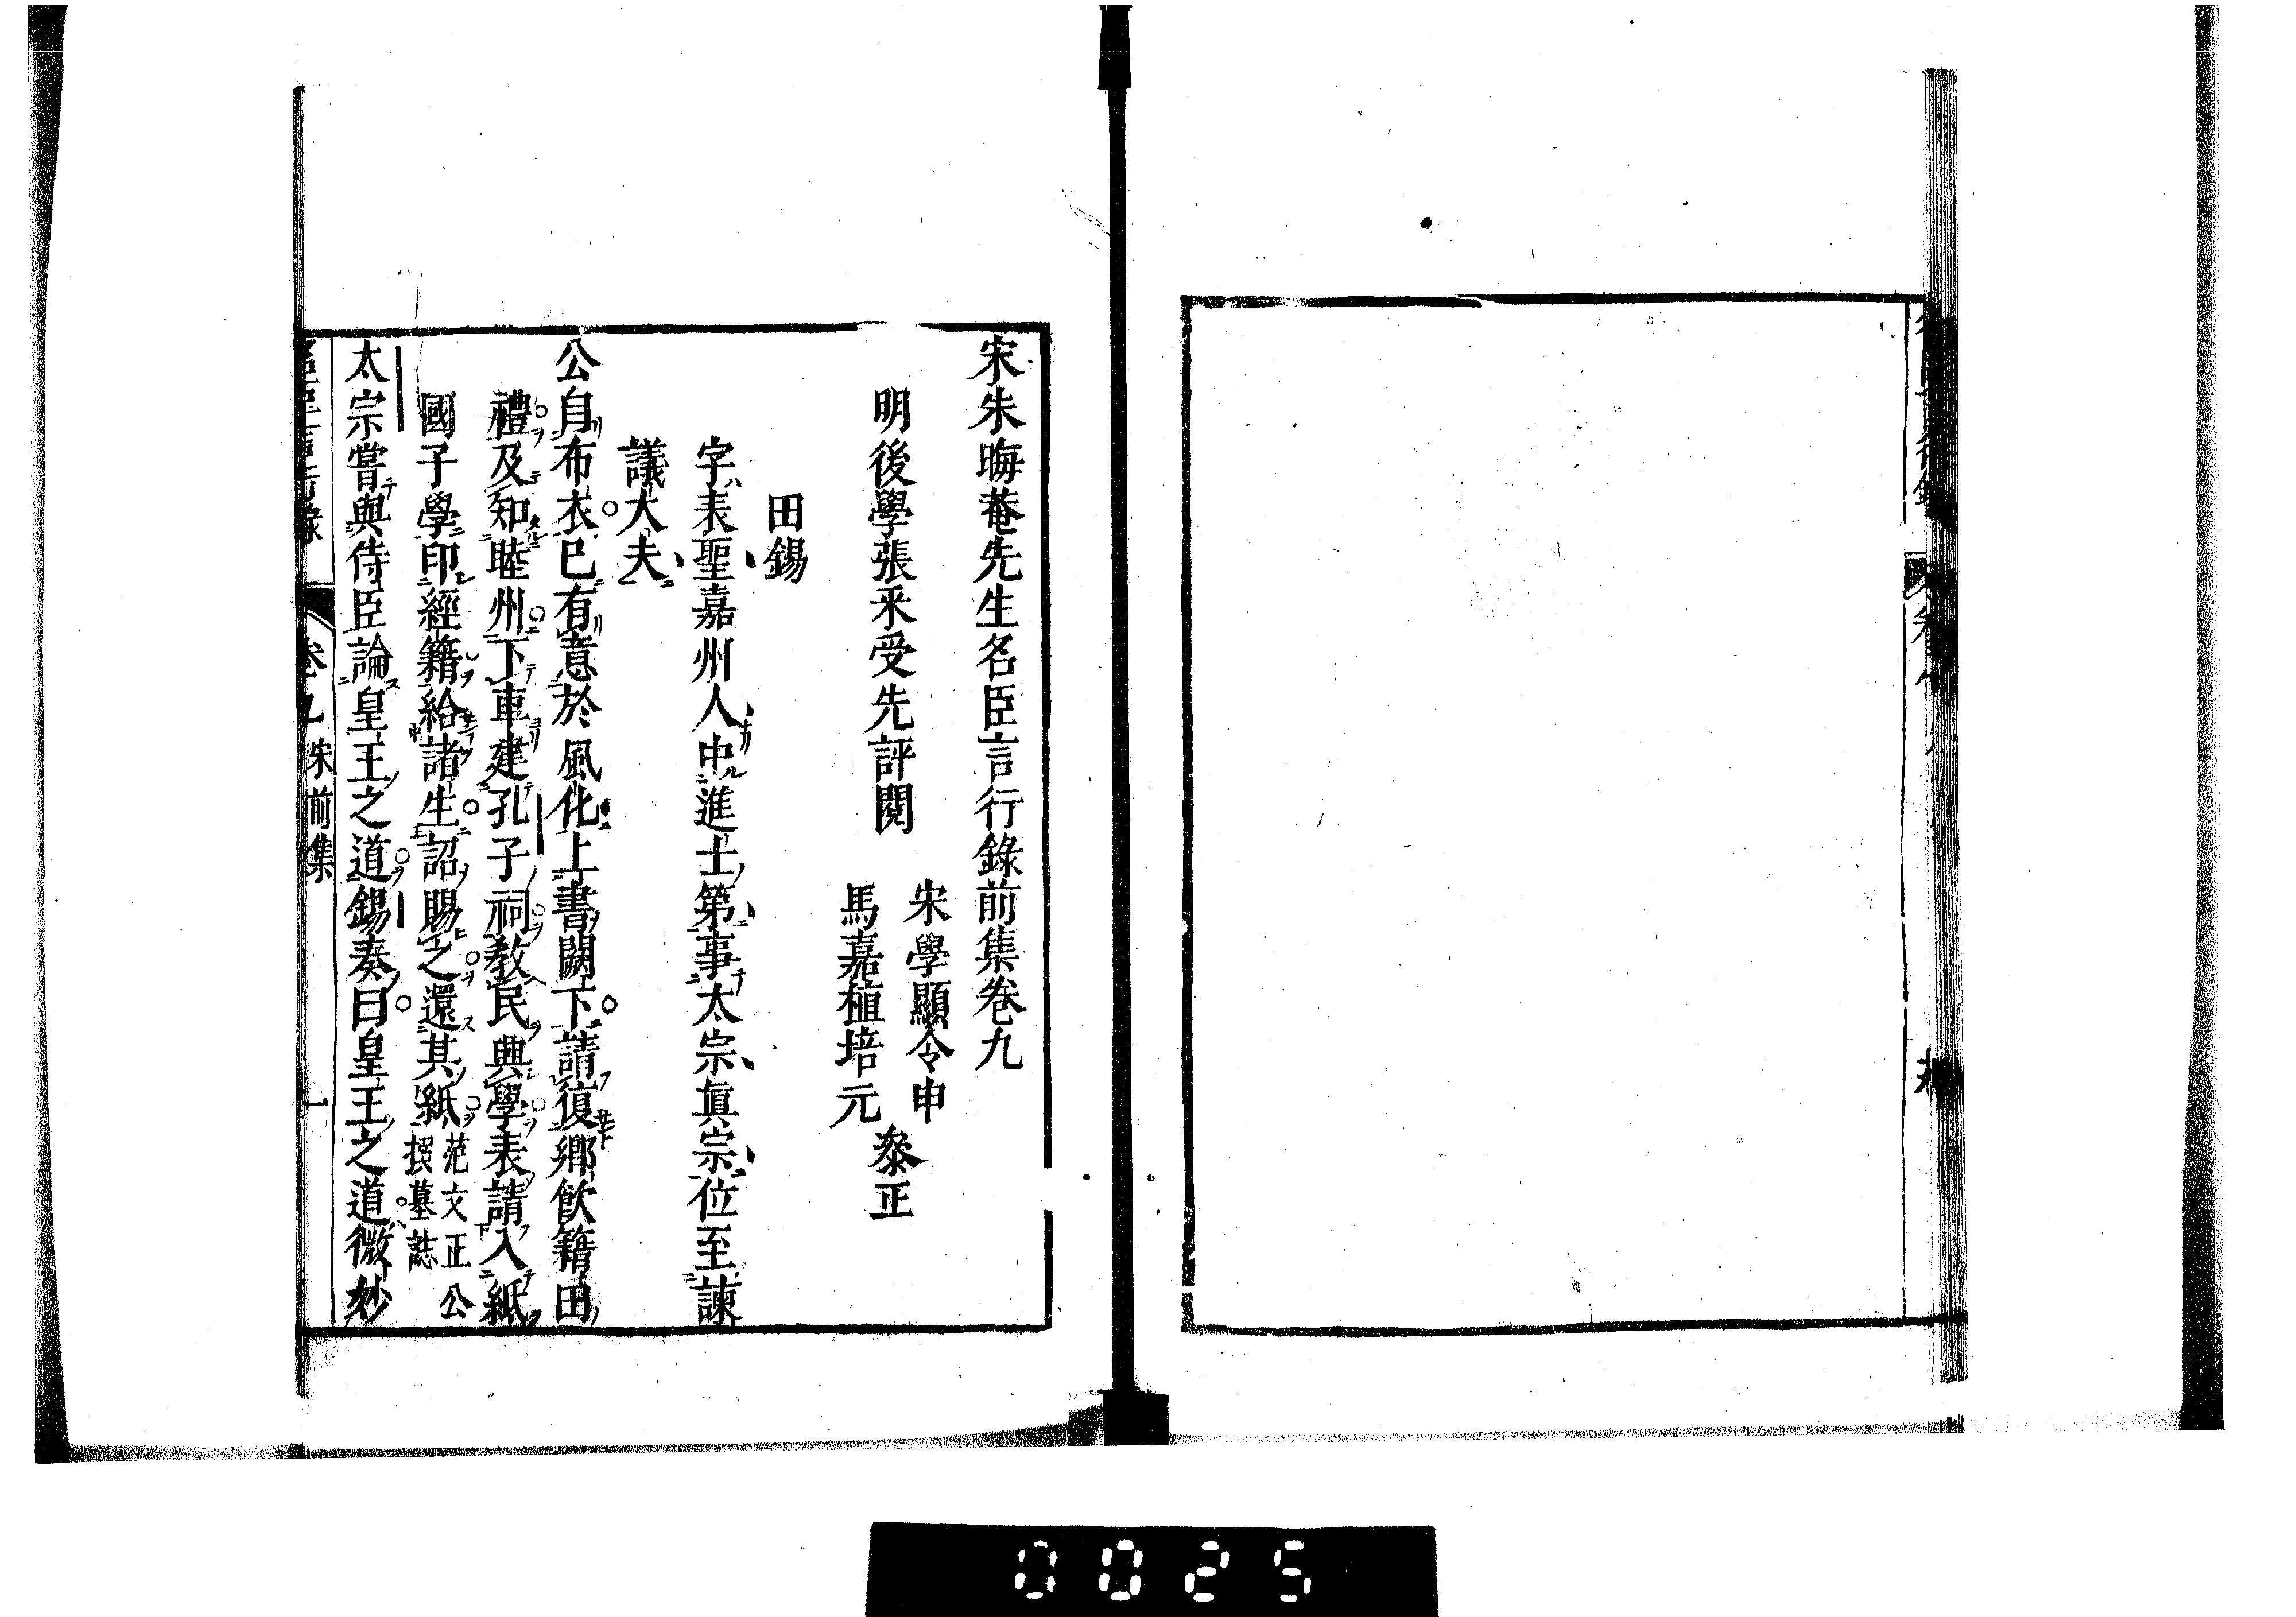 宋朱晦菴先生名臣言行錄前集卷九
明後學張釆受先評閱
宋學顯令申
馬嘉植培元
叅正
田錫
字表聖嘉州人中進士第事太宗眞宗位至諫
議大夫
公自布衣已有意於風化上書闕下請復鄉飲籍田
禮及知睦州下車建孔子祠教民興學表請入紙
國子學印經籍給諸生詔賜之還其紙
范文正公
撰墓誌
太宗嘗與侍臣論皇王之道錫奏曰皇王之道微妙
卷九 宋前集
一
0025